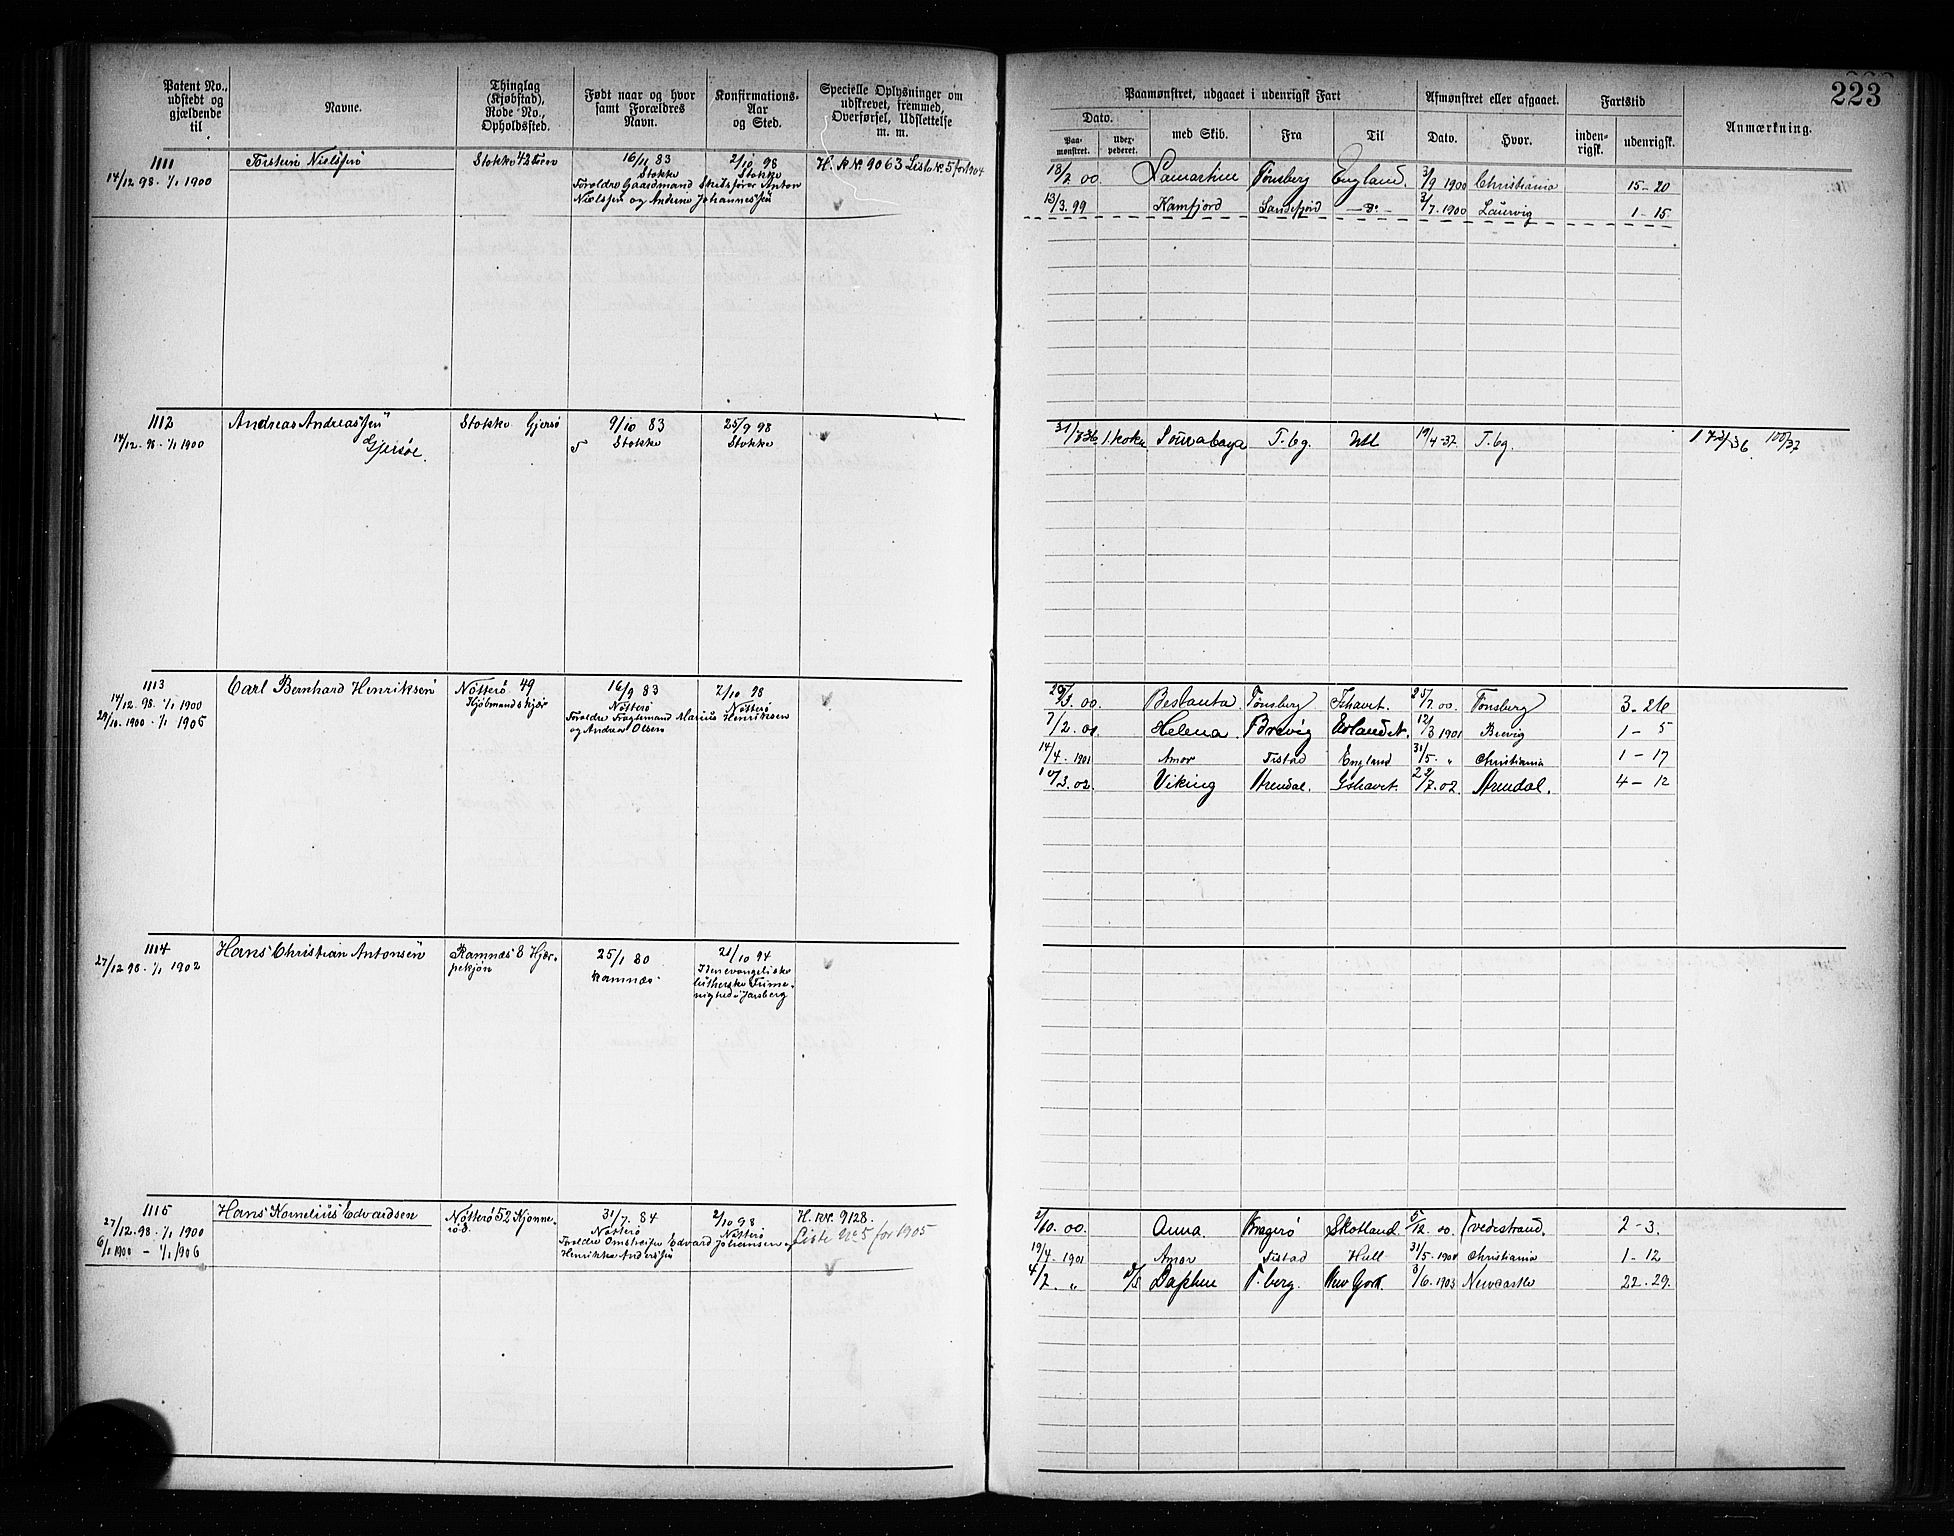 223
Patent No., udstedt og gjældende til
Navne.
Thinglag (Kjøbstad), Rode No., Opholdssted.
Født naar og hvor samt Forældres Navn.
Konfirmations- Aar og Sted.
Specielle Oplysninger om udskrevet, fremmed, Overførsel, Udslettelse m. m.
Paamønstret, udgaaet i udenrigsk Fart
Afmønstret eller afgaaet.
Fartstid
Anmærkning.
Dato.
Paa- mønstret.
Uder- pederet.
med Skib.
Fra
Til
Dato.
Hvor.
inden- rigsk.
udenrigsk.
1111
14/12 98. 1/1 1900
Torstein Nielssen
Stokke 42
16/11 83
Stokke
Forældre Gaardmand Skibsfører Anton
Nielssen og Andrine Johannessen
2/10 98
Stokke
H. R Nr. 9063 Liste Nr. 5 for 1904
18/2 00. Lamartine Tønsberg England. 3/9 1900 Christiania 15-20
13/3. 99 Kamfjord Sandefjord —do— 3/7. 1900 Laurvig 1-15
1112
14/12. 98. 1/1 1900
Andreas Andreassen
Gjersøe.
Stokke Gjersø
9/10 83
5 Stokke
25/9 98
Stokke
31/7 36 1. kokk Sourabaya T.bg. Utl 19/4-37 T.bg.
1113
14/12. 98. 1/1 1900
29/10. 1900. 1/1 1905
Carl Bernhard Henriksen
Nötterö 49
Kjöbmandskjær
16/9 83
Nötterö
Forældre Fragtemand Marius Henriksen
og Andrea Olsen
2/10 98
Nötterö
29/3. 00. Bestanta Tönsberg Ishavet. 25/7. 00. Tönsberg 3-26
7/2. 01. Helena Brevig Udlandet. 12/3 1901 Brevig 1-5
14/4. 1901 Amor Tistad England 31/5. " Christiania 1-17
10/3. 02. Viking Arendal. Ishavet. 22/7. 02. Arendal. 4-12
1114
27/12 98. 1/1 1902
Hans Christian Antonsen
Ramnæs 8 Hjær-
pekjøn
25/1 80
Ramnæs
21/10 94
I den evangeliske
lutherske Frime-
nighed i Jarlsberg
1115
27/12. 98. 1/1 1900
6/1 1900 — 1/1 1906
Hans Kornelius Edvardsen
Nötterö 52 Kjönne-
röd
31/7. 84
Nötterö
Forældre Edvard Johansen og
Henrikke Anderssen
2/10 98
Nötterö
H. R Nr. 9128.
Liste No. 5 for 1905
2/10. 00. Anna Kragerö Skotland 5/12. 00. Tvedestrand. 2-3.
19/4. 1901 Amor Tistad Hull 31/5. 1901 Christiania 1-12
4/2. " Daphne T.berg. New York. 3/6. 1903 Newcastle 22-29.